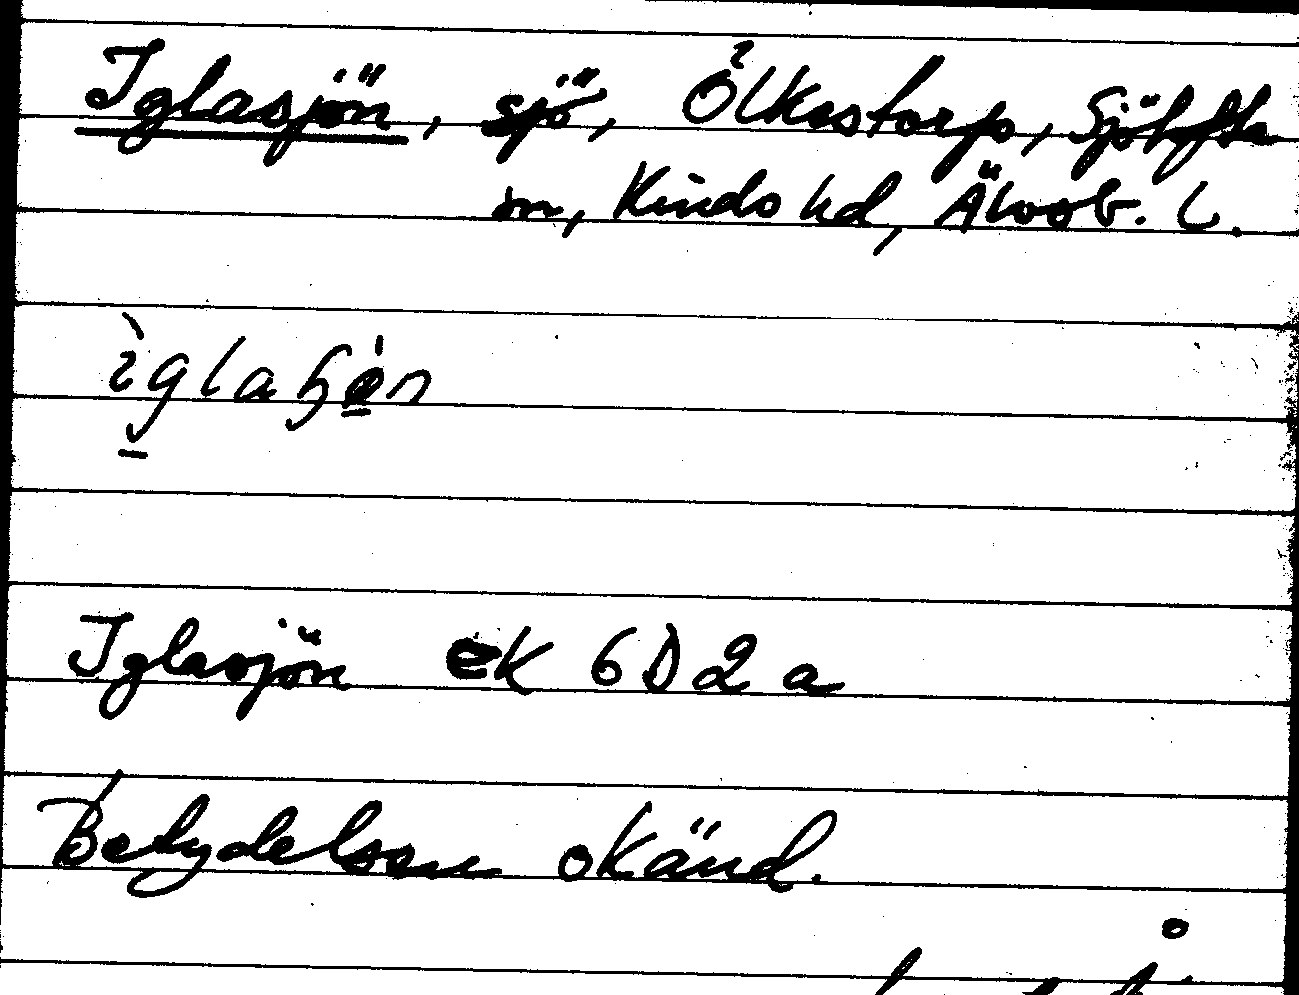 Iglasjön, sjö, Ölkestorp, Sjötofta
sn, Kinds hd, Älvsb. L.
ìglaɧ
Iglasjön eK 6D 2 a
Betydelsen okänd.